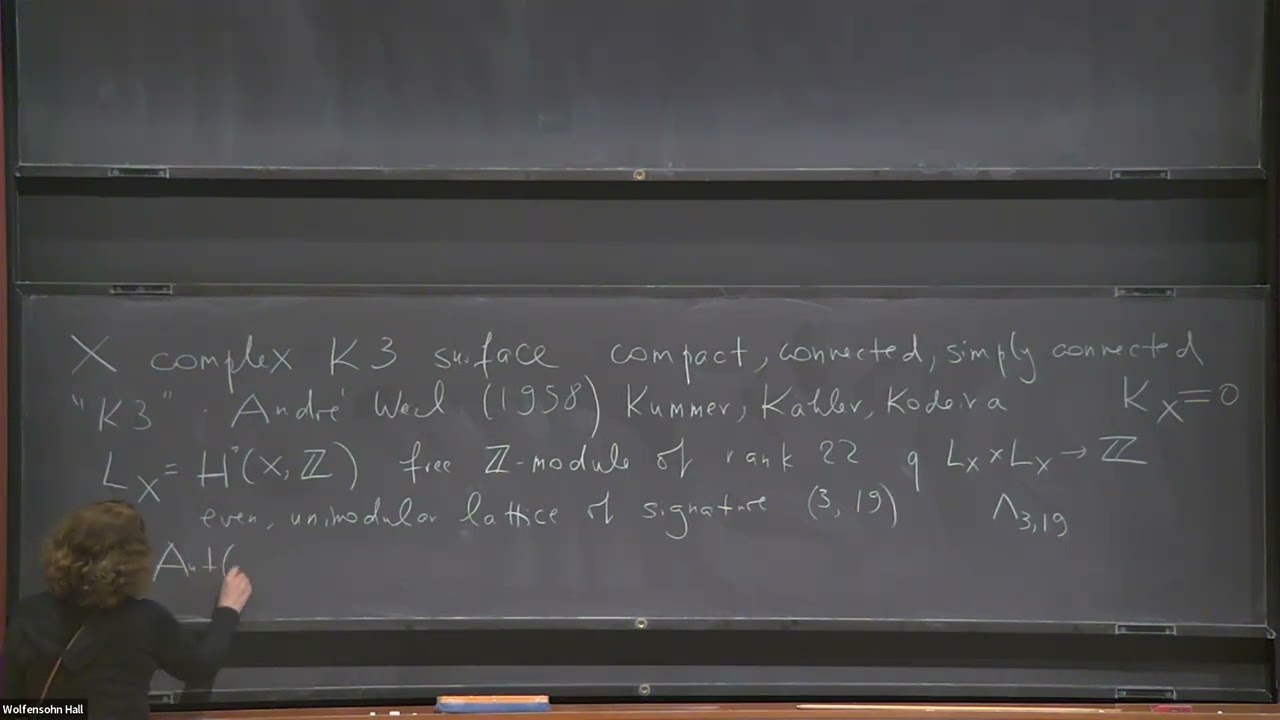 X complex K3 surface compact, connected, simply connected
"K3". André Weil (1958) Kummer, Kähler, Kodaira K_X=0
L_X = H²(X, ℤ) free ℤ-module of rank 22 q L_X × L_X → ℤ
even, unimodular lattice of signature (3, 19) Λ_{3,19}
Aut(
Wolfensohn Hall